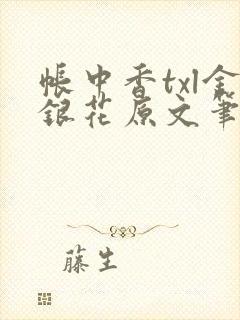 帳中香txl金
銀花原文筆
藤生